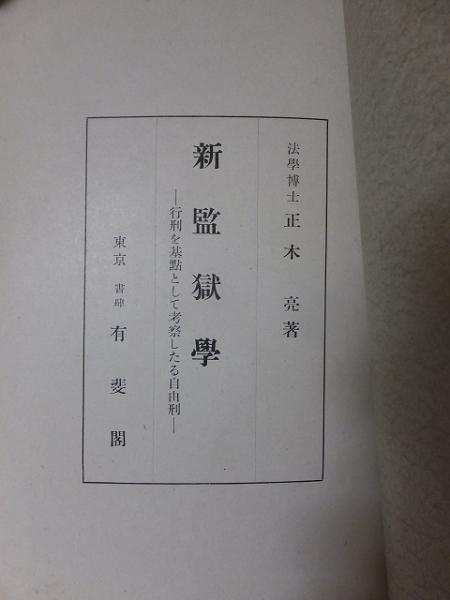 法學博士 正木 亮著
新監獄學
―行刑を基點として考察したる自由刑―
東京 書肆 有斐閣